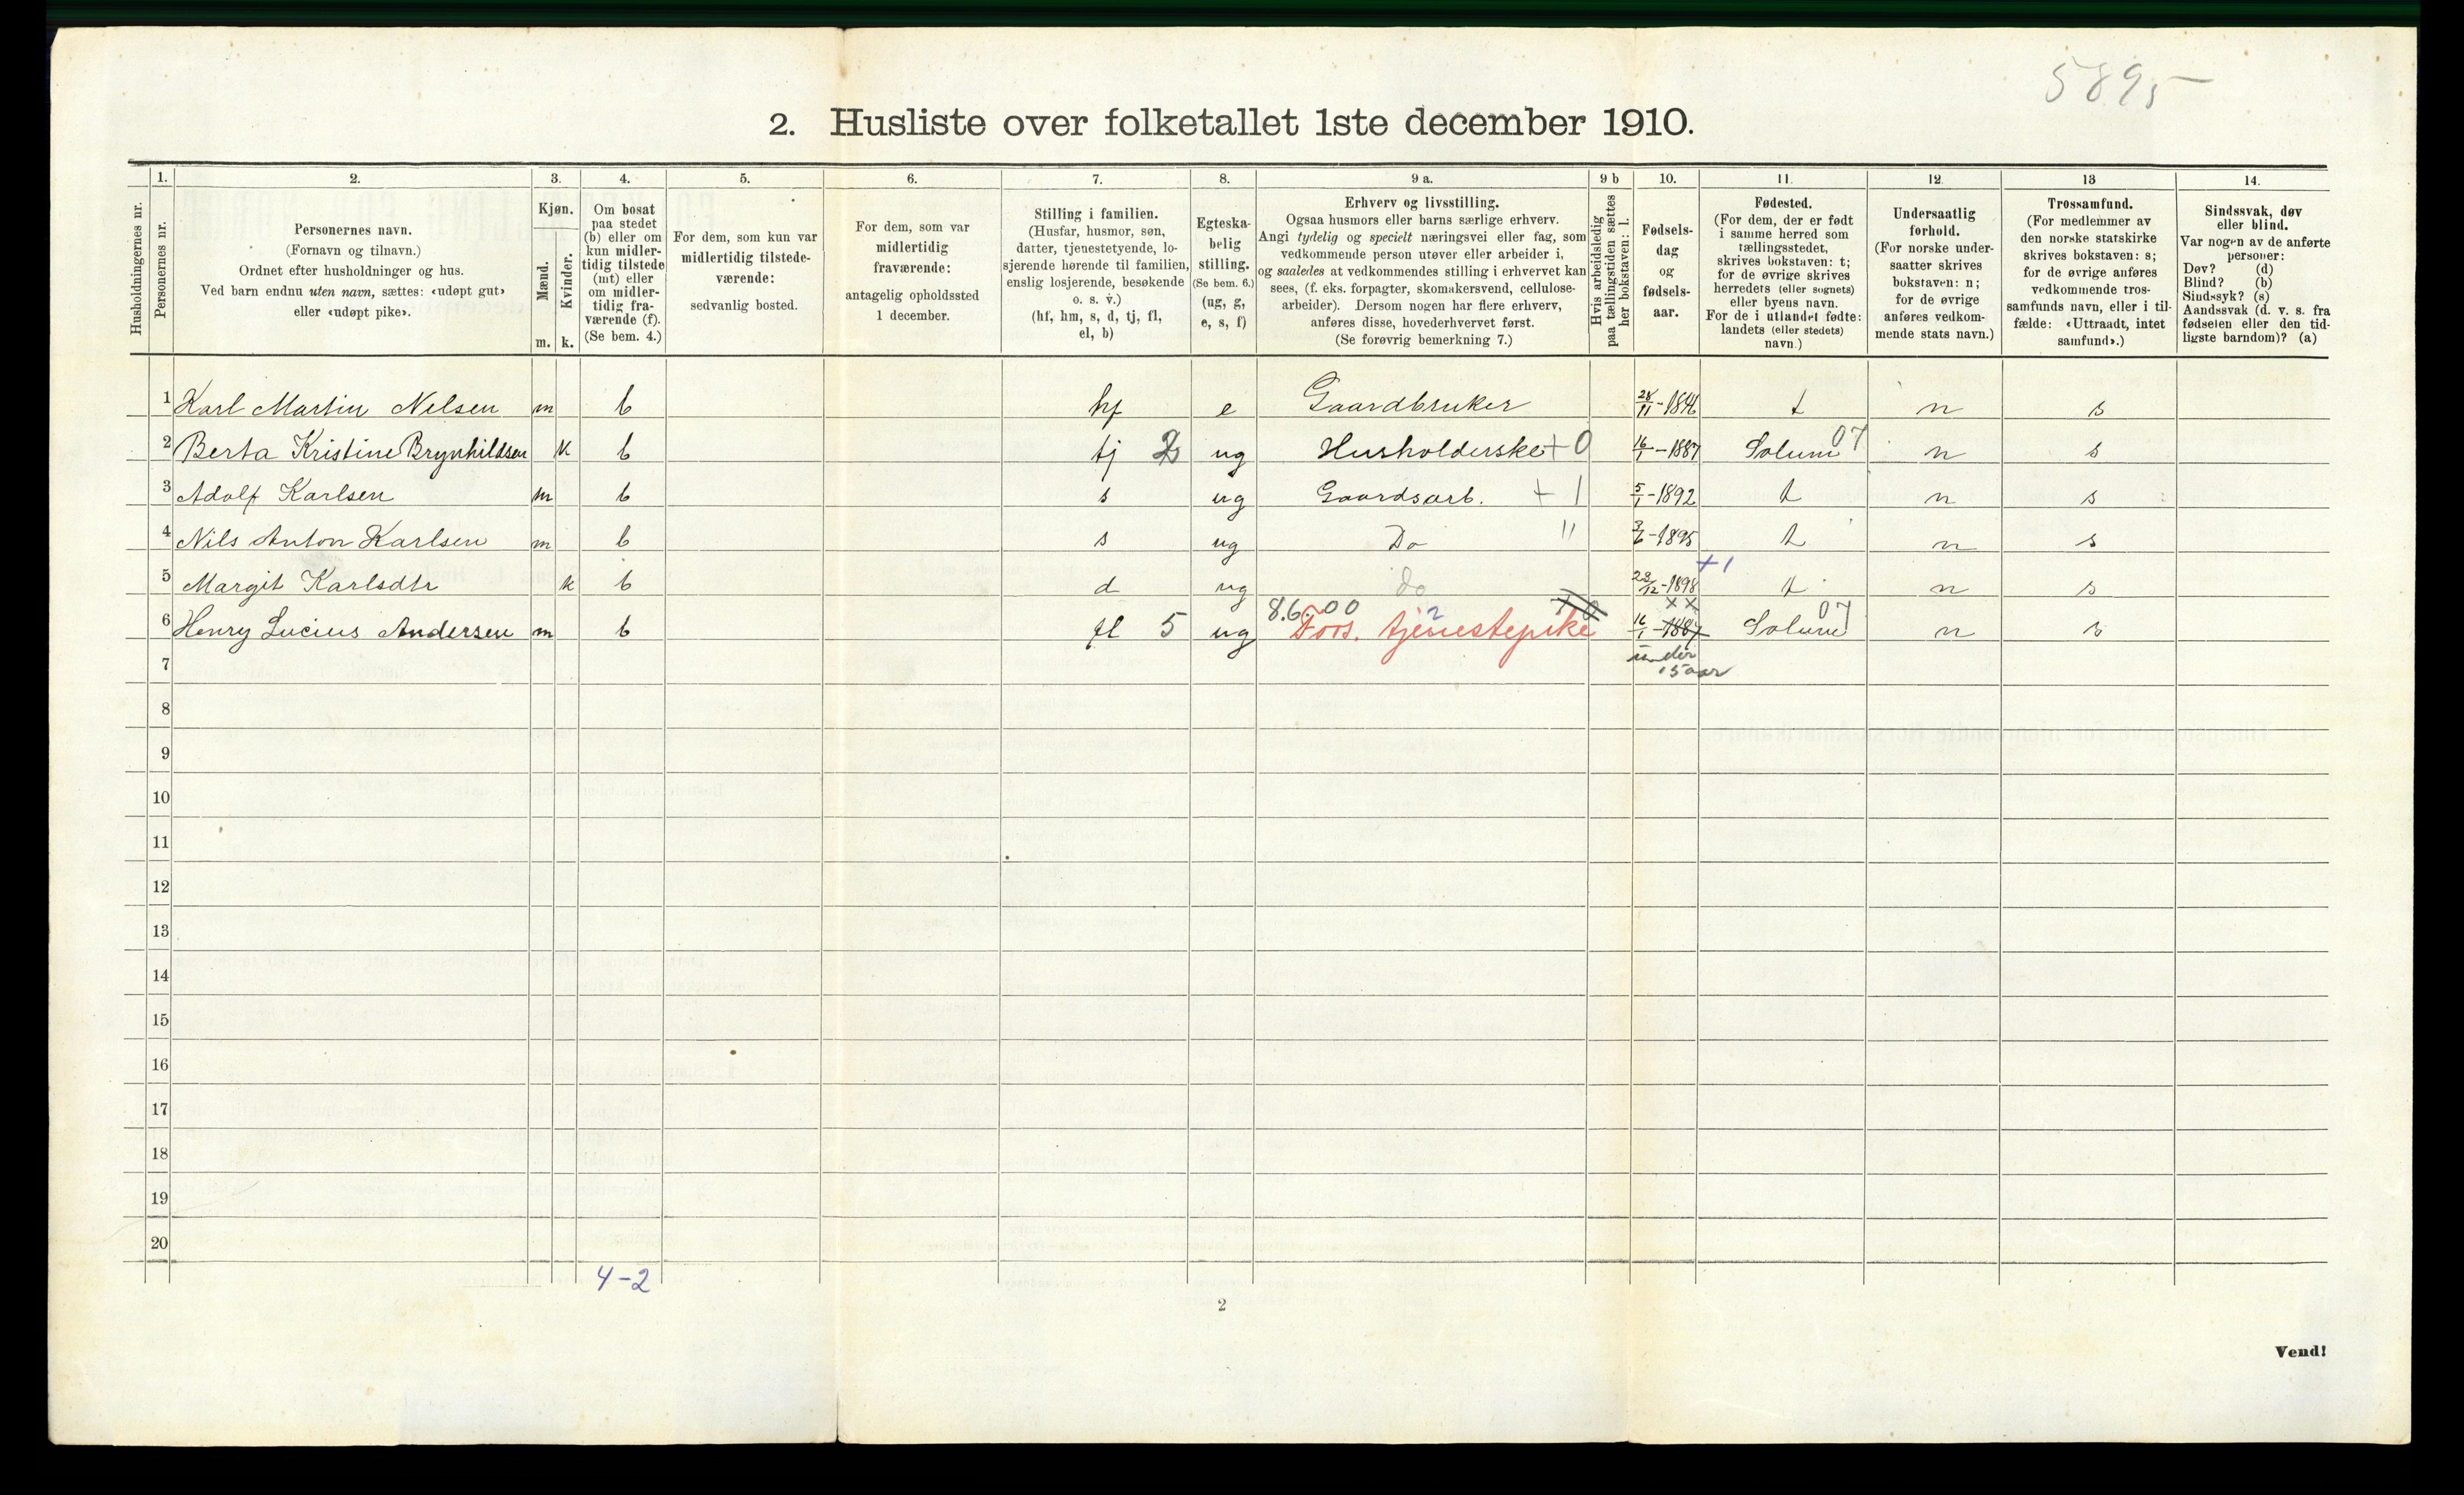 5895
2. Husliste over folketallet 1ste december 1910.
Husholdningernes nr.
1.
Personernes nr.
2.
Personernes navn.
(Fornavn og tilnavn.)
Ordnet efter husholdninger og hus.
Ved barn endnu uten navn, sættes: «udøpt gut»
eller «udøpt pike».
3.
Kjøn.
Mænd.
Kvinder.
m. k.
4.
Om bosat
paa stedet
(b) eller om
kun midler-
tidig tilstede
(mt) eller
om midler-
tidig fra-
værende (f).
(Se bem. 4.)
5.
For dem, som kun var
midlertidig tilstede-
værende:
sedvanlig bosted.
6.
For dem, som var
midlertidig
fraværende:
antagelig opholdssted
1 december.
7.
Stilling i familien.
(Husfar, husmor, søn,
datter, tjenestetyende, lo-
sjerende hørende til familien,
enslig losjerende, besøkende
o. s. v.)
(hf, hm, s, d, tj, fl,
el, b)
8.
Egteska-
belig
stilling.
(Se bem. 6.)
(ug, g,
e, s, f)
9 a.
Erhverv og livsstilling.
Ogsaa husmors eller barns særlige erhverv.
Angi tydelig og specielt næringsvei eller fag, som
vedkommende person utøver eller arbeider i,
og saaledes at vedkommendes stilling i erhvervet kan
sees, (f. eks. forpagter, skomakersvend, cellulose-
arbeider). Dersom nogen har flere erhverv,
anføres disse, hovederhvervet først.
(Se forøvrig bemerkning 7.)
9 b
Hvis arbeidsledig
paa tællingstiden sættes
her bokstaven: l.
10.
Fødsels-
dag
og
fødsels-
aar.
11.
Fødested.
(For dem, der er født
i samme herred som
tællingsstedet,
skrives bokstaven: t;
for de øvrige skrives
herredets (eller sognets)
eller byens navn.
For de i utlandet fødte:
landets (eller stedets)
navn.)
12.
Undersaatlig
forhold.
(For norske under-
saatter skrives
bokstaven: n;
for de øvrige
anføres vedkom-
mende stats navn.)
13
Trossamfund.
(For medlemmer av
den norske statskirke
skrives bokstaven: s;
for de øvrige anføres
vedkommende tros-
samfunds navn, eller i til-
fælde: «Uttraadt, intet
samfund».)
14.
Sindssvak, døv
eller blind.
Var nogen av de anførte
personer:
Døv? (d)
Blind? (b)
Sindssyk? (s)
Aandssvak (d. v. s. fra
fødselen eller den tid-
ligste barndom)? (a)
1 Karl Martin Nelsen m b hf e Gaardbruker 28/11- t n s
2 Berta Kristine Brynhildsen k b tj 2 ug Husholderske +0 16/1-1887 Solum 07 n s
3 Adolf Karlsen m b s ug Gaardsarb. +1 5/1-1892 t n s
4 Nils Anton Karlsen m b s ug Do " -1895 t n s
+1
5 Margit Karlsdtr k b d ug do 23/12-1898 t n s
8.6.00 2 +0 x x 07
6 Henry Lucius Andersen m b fl 5 ug Fors. tjenestepike 16/1-1887 Solum n s
under
15 aar
7
8
9
10
11
12
13
14
15
16
17
18
19
20
4-2
2
Vend!